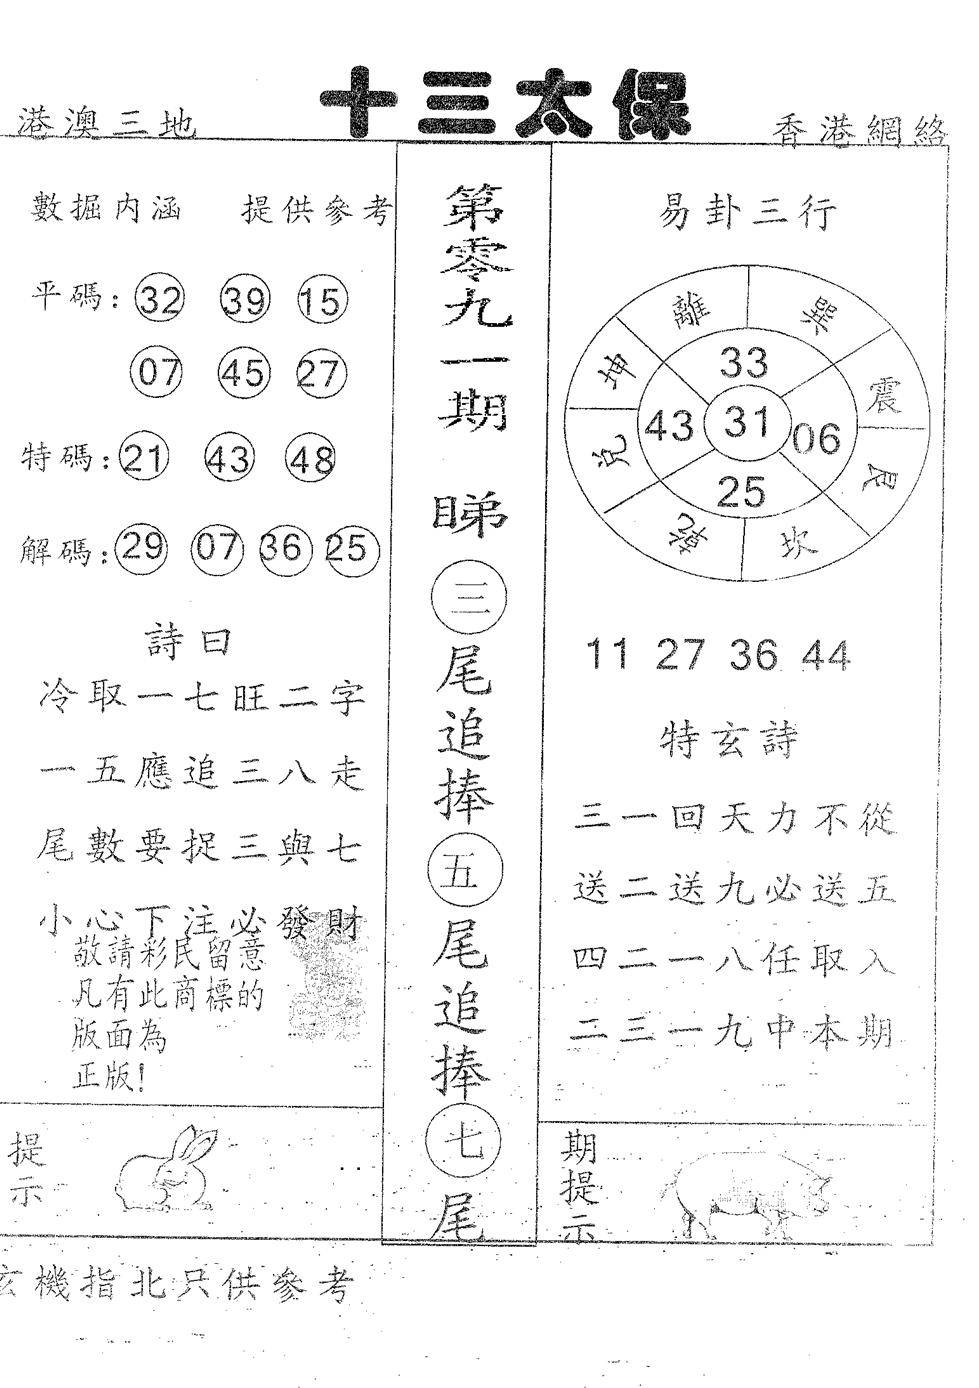 十三太保
港澳三地
香港網絡
數掘内涵 提供參考
平碼：32 39 15
07 45 27
特碼：21 43 48
解碼：29 07 36 25
詩曰
冷取一七旺二字
一五應追三八走
尾數要捉三與七
小心下注必發財
敬請彩民留意
凡有此商標的
版面為
正版!
提示
第零九一期
睇三尾追捧五尾追捧七尾
易卦三行
離 巽
坤 震
兌 艮
乾 坎
33
43 31 06
25
11 27 36 44
特玄詩
三一回天力不從
送二送九必送五
四二一八任取入
二三一九中本期
期提示
玄機指北只供參考